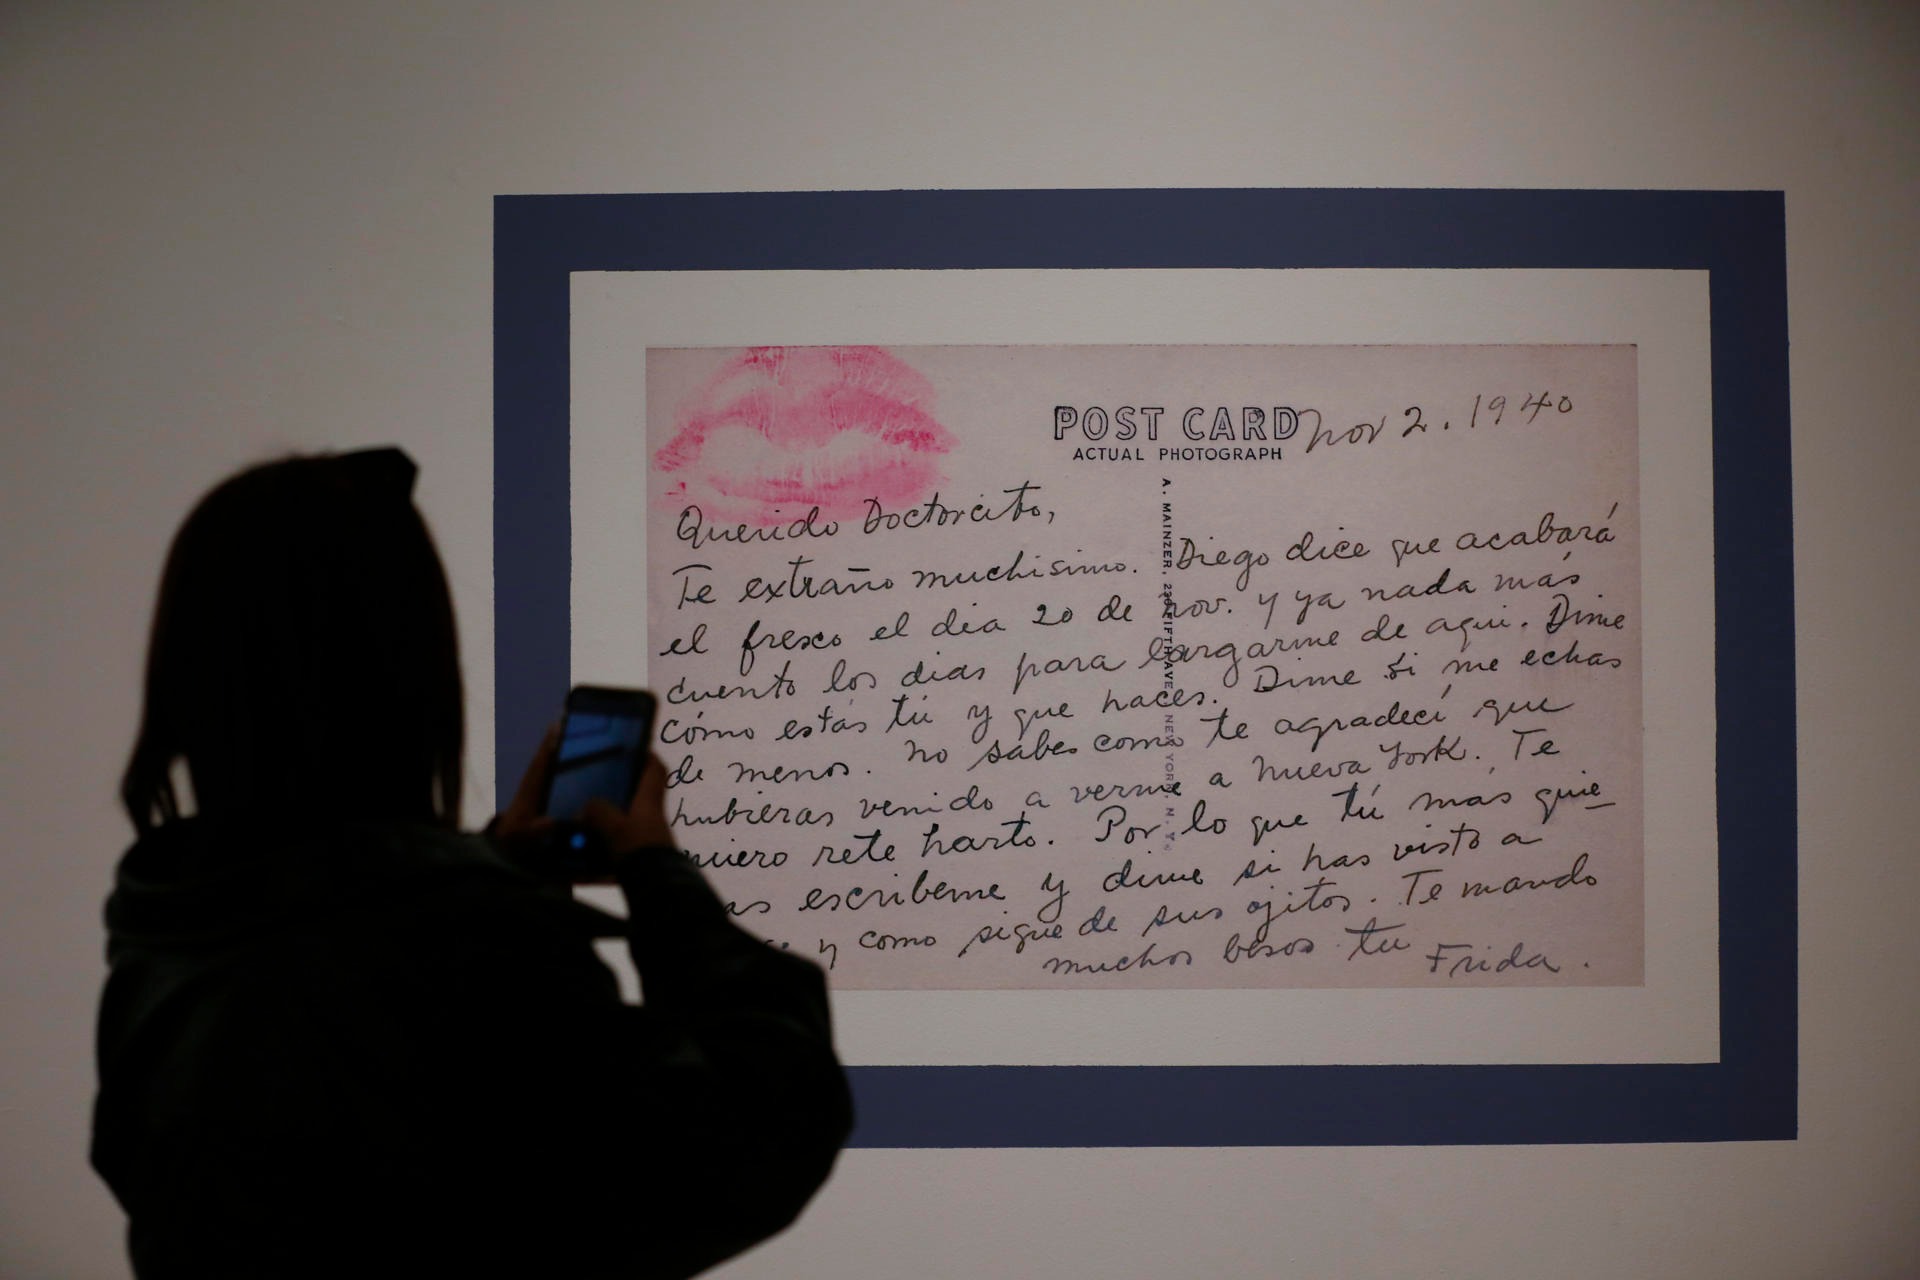 POST CARD
ACTUAL PHOTOGRAPH
Nov 2. 1940
A. MAINZER, 226 FIFTH AVE NEW YORK, N. Y.
Querido Doctorcito,
Te extraño muchisimo. Diego dice que acabará
el fresco el dia 20 de nov. y ya nada más
cuento los dias para largarme de aqui. Dime
cómo estás tú y que haces. Dime si me echas
de menos. no sabes como te agradecí que
hubieras venido a verme a Nueva York. Te
quiero rete harto. Por lo que tú mas quie
ras escribeme y dime si has visto a
y como sigue de sus ojitos. Te mando
muchos besos tu Frida.